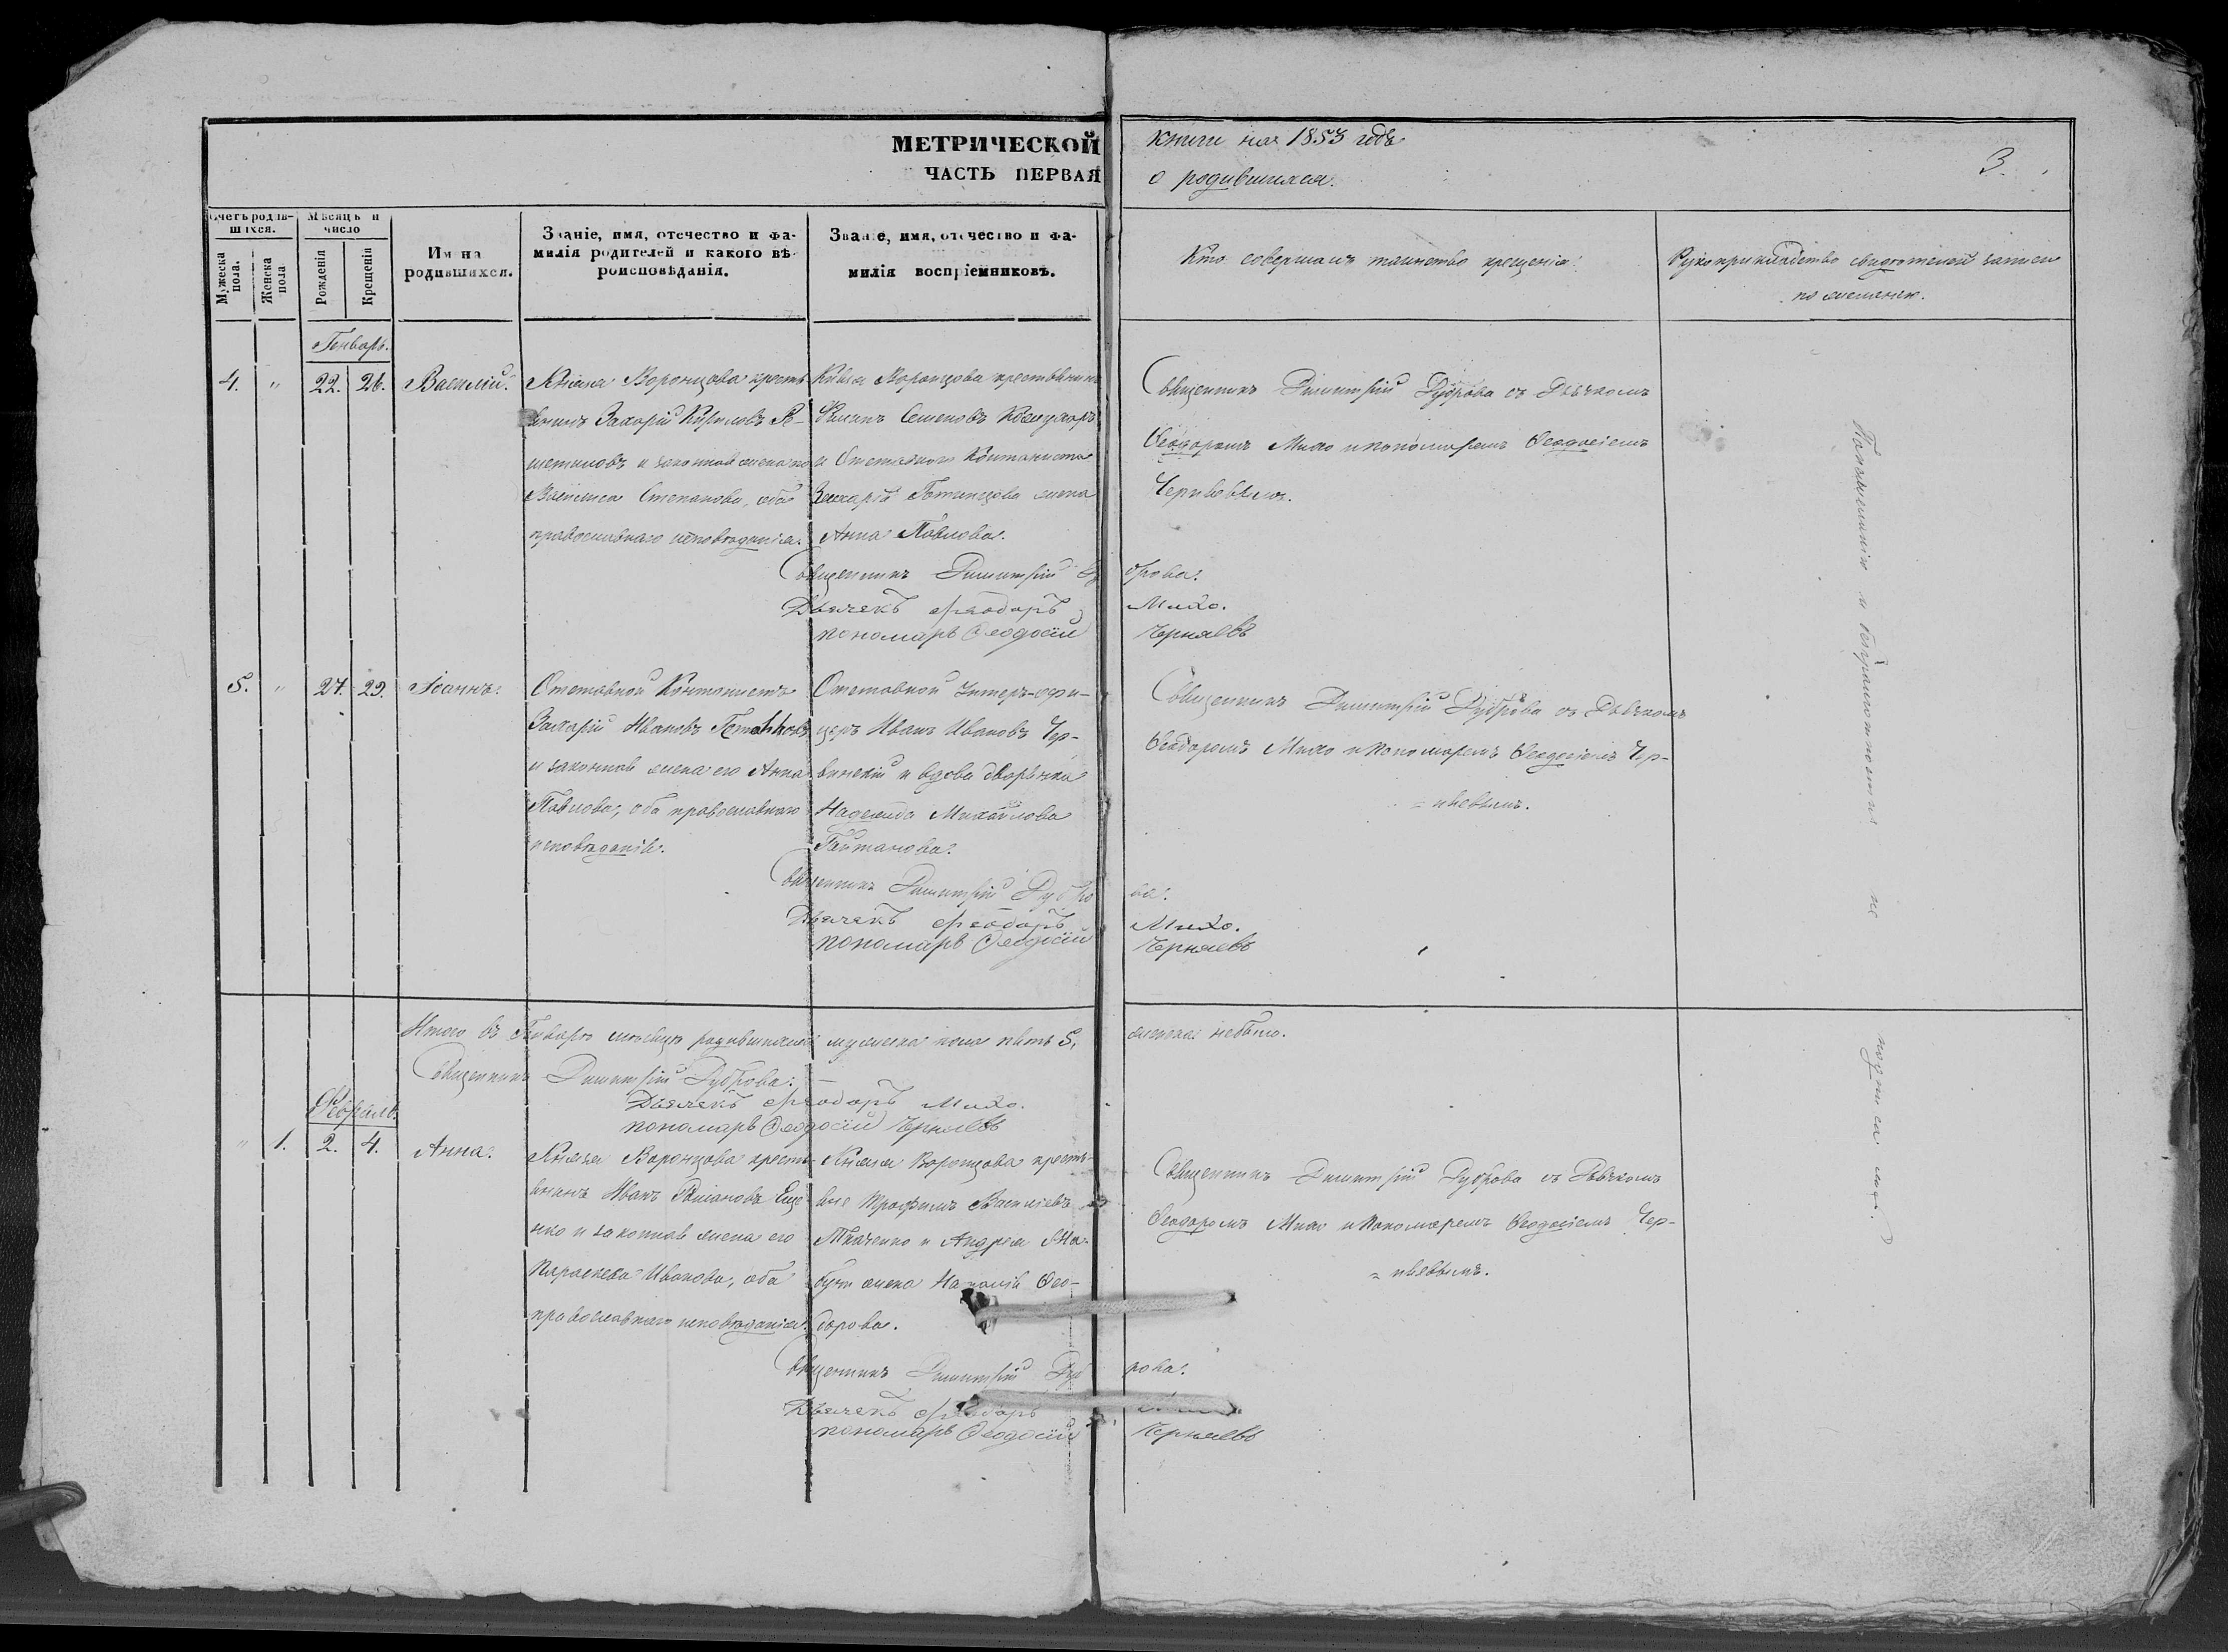 МЕТРИЧЕСКОЙ
ЧАСТЬ ПЕРВАЯ
книги на 1853 годъ
о родившихся.
3.
Счетъ родив-
шихся.
Мѣсяцъ и
число
Мужеска
пола.
Женска
пола
Рожденія
Крещенія
Имена
родившихся.
Званіе, имя, отчество и фа-
милія родителей и какого вѣ-
роисповѣданія.
Званіе, имя, отчество и фа-
милія воспріемниковъ.
Кто совершалъ таинство крещенія.
Рукоприкладство свидѣтелей записи
по желанію.
Генварь.
4. " 22. 26. Василій.
Князя Воронцова кресть-
янинъ Захарій Кириловъ
и законная жена его
Василиса Степанова, оба
православнаго исповѣданія.
Князя Воронцова крестьянинъ
Семеновъ
и Отставнаго Контониста
Захарія жена
Анна Павлова.
Священникъ Димитрій Дуброва съ Дьячкомъ
Ѳеодоромъ Михо и пономаремъ Ѳеодосіемъ
Черняевымъ.
Священникъ Димитрій Дуброва.
Дьячекъ Ѳеодоръ Михо.
пономарь Ѳеодосій Черняевъ
5. " 27. 29. Іоаннъ.
Отставной Контонистъ
Захарій Ивановъ
и законная жена его Анна
Павлова, оба православнаго
исповѣданія.
Отставной Унтеръ-офи-
церъ Иванъ Ивановъ Чер-
винскій и вдова дворянка
Надежда Михайлова
Гайтанова.
Священникъ Димитрій Дуброва съ Дьячкомъ
Ѳеодоромъ Михо и пономаремъ Ѳеодосіемъ Чер-
= няевымъ.
Священникъ Димитрій Дуброва.
Дьячекъ Ѳеодоръ Михо.
пономарь Ѳеодосій Черняевъ
Итого въ Генварѣ мѣсяцѣ родившихся мужеска пола пять 5, женска не было.
Священникъ Димитрій Дуброва.
Дьячекъ Ѳеодоръ Михо.
пономарь Ѳеодосій Черняевъ
Февраль.
" 1. 2. 4. Анна.
Князя Воронцова кресть-
янинъ Иванъ Еще-
нко и законная жена его
Параскева Иванова, оба
православнаго исповѣданія.
Князя Воронцова кресть-
яне Трофимъ Василіевъ
Ткаченко и Андрея
жена Наталія Ѳео-
дорова.
Священникъ Димитрій Дуброва съ Дьячкомъ
Ѳеодоромъ Михо и пономаремъ Ѳеодосіемъ Чер-
= няевымъ.
Священникъ Димитрій Дуброва.
Дьячекъ Ѳеодоръ
пономарь Ѳеодосій Черняевъ